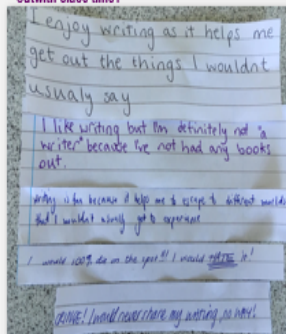 outwith class time?
I enjoy writing as it helps me
get out the things I wouldnt
usualy say
I like writing but I'm definitely not "a
writer" because I've not had any books
out.
writing is fun because it helps me to escape to different worlds
that I wouldn't usually get to experience
I would 100% die on the spot!! I would HATE it!
CRINGE! I would never share my writing, no way!